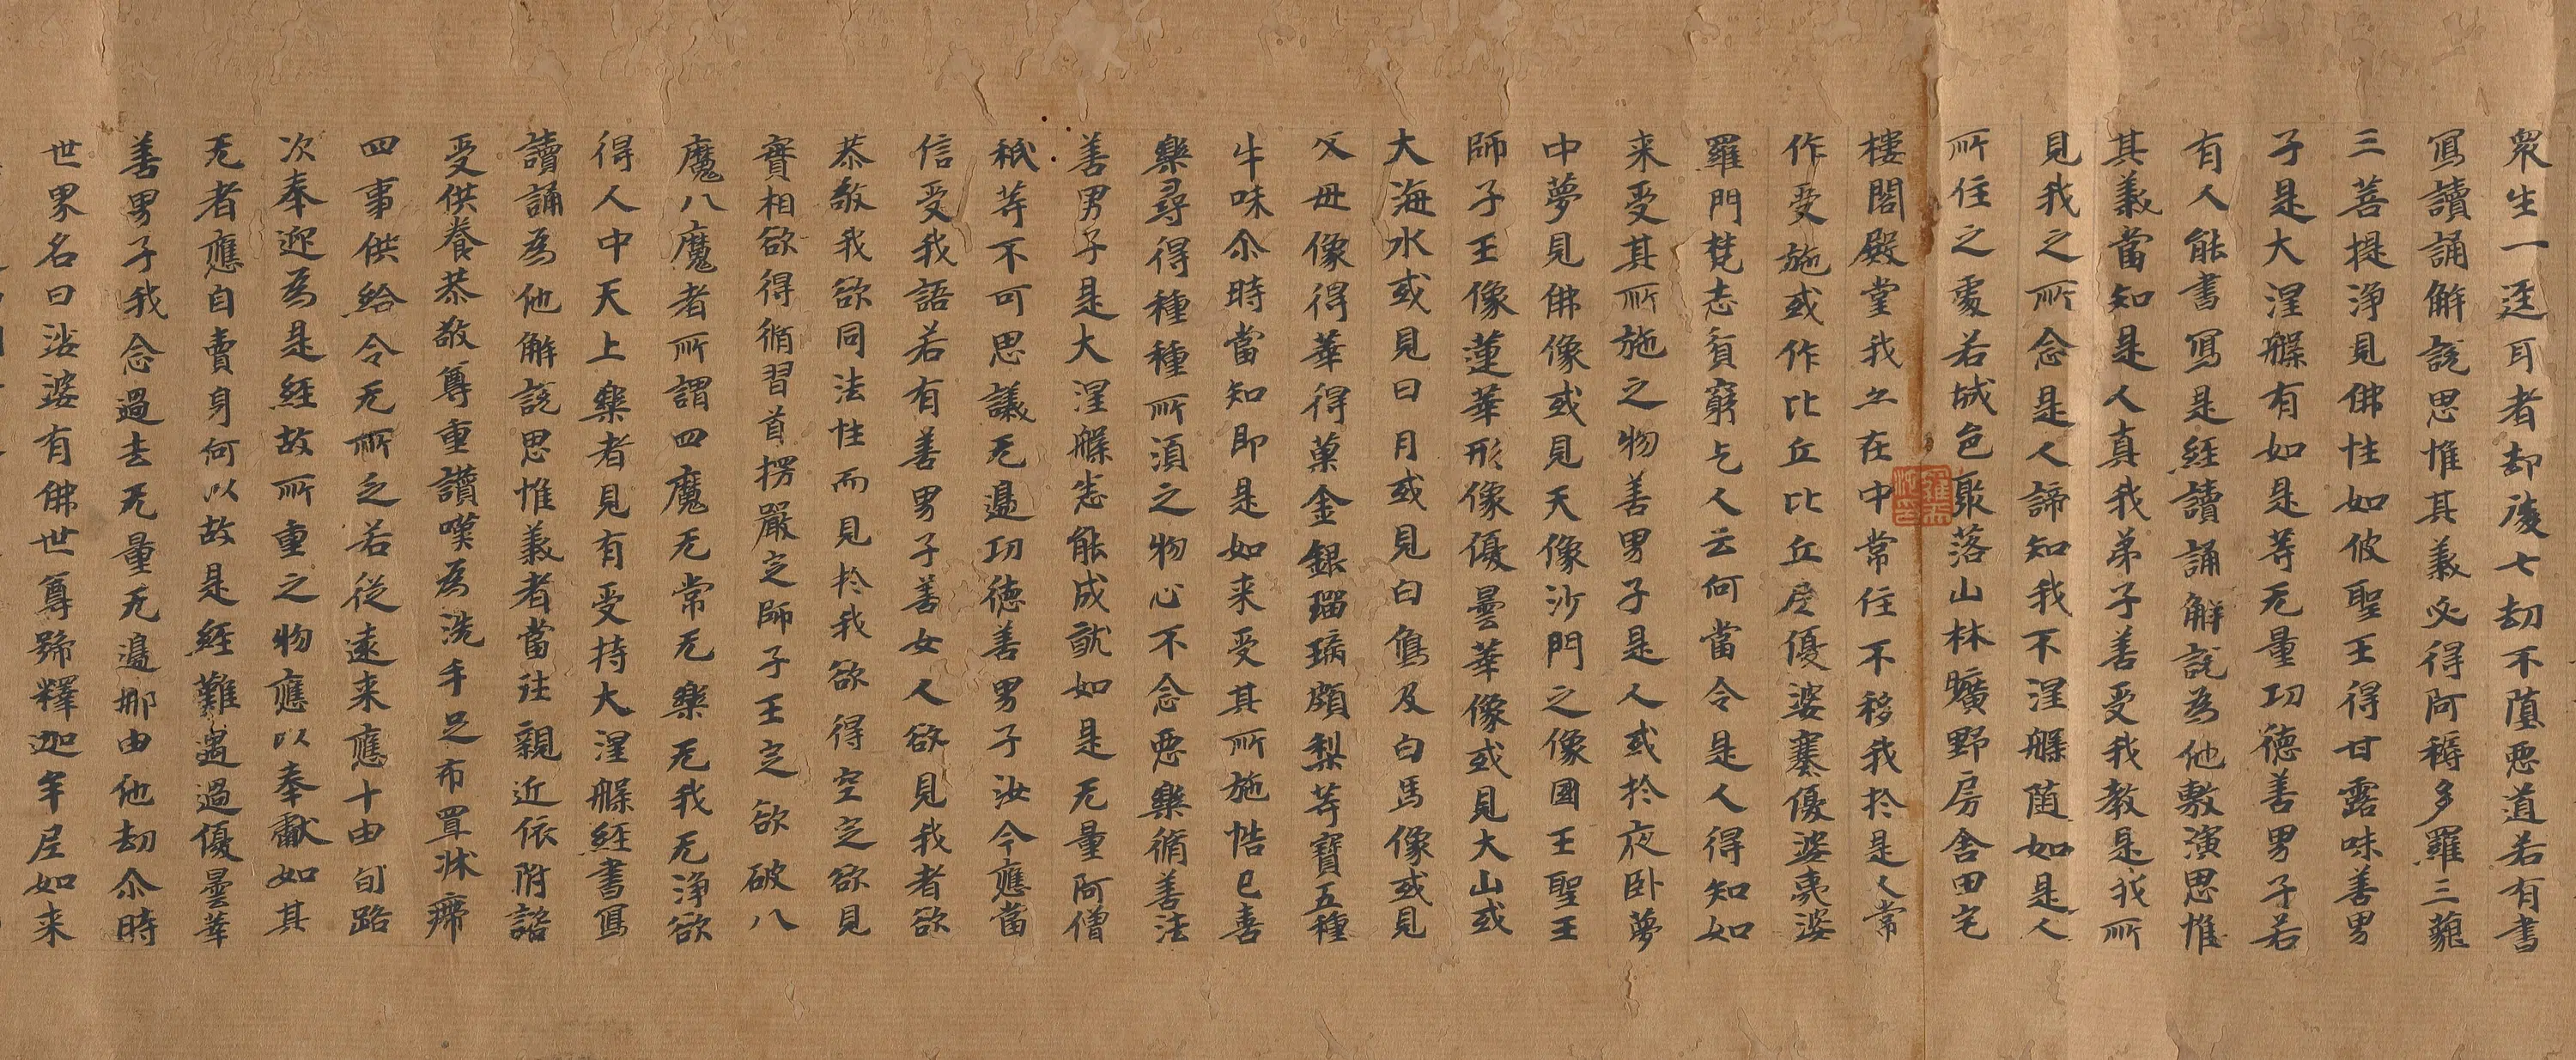 眾生一逕耳者却後七劫不墮惡道若有書
寫讀誦解說思惟其義必得阿耨多羅三藐
三菩提淨見佛性如彼聖王得甘露味善男
子是大涅槃有如是等无量功德善男子若
有人能書寫是經讀誦解說為他敷演思惟
其義當知是人真我弟子善受我教是我所
見我之所念是人諦知我不涅槃隨如是人
所住之處若城邑聚落山林曠野房舍田宅
樓閣殿堂我亦在中常住不移我於是人常
作受施或作比丘比丘尼優婆塞優婆夷婆
羅門梵志貧窮乞人云何當令是人得知如
来受其所施之物善男子是人或於夜卧夢
中夢見佛像或見天像沙門之像國王聖王
師子王像蓮華形像優曇華像或見大山或
大海水或見日月或見白鴈及白馬像或見
父母像得華得菓金銀瑠璃頗梨等寶五種
牛味尒時當知即是如来受其所施悟已喜
樂尋得種種所須之物心不念惡樂脩善法
善男子是大涅槃悉能成就如是无量阿僧
祇等不可思議无邊功德善男子汝今應當
信受我語若有善男子善女人欲見我者欲
恭敬我欲同法性而見於我欲得空定欲見
實相欲得脩習首楞嚴定師子王定欲破八
魔八魔者所謂四魔无常无樂无我无淨欲
得人中天上樂者見有受持大涅槃經書寫
讀誦為他解說思惟義者當往親近依附諮
受供養恭敬尊重讚嘆為洗手足布置牀㡡
四事供給令无所乏若從遠来應十由旬路
次奉迎為是經故所重之物應以奉獻如其
无者應自賣身何以故是經難遇過優曇華
善男子我念過去无量无邊那由他劫尒時
世界名曰娑婆有佛世尊號釋迦牟尼如来